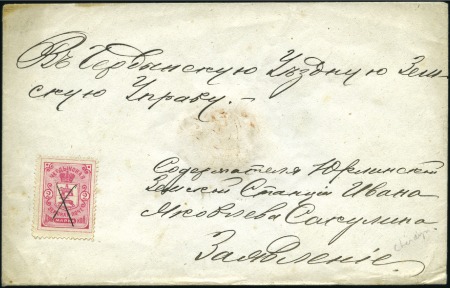 Въ Чердынскую Уѣздную Зем-
скую Управу.-
Содержателя Юрлинской
Земской Станціи Ивана
Яковлева Сакулина
Заявленіе.
2 2